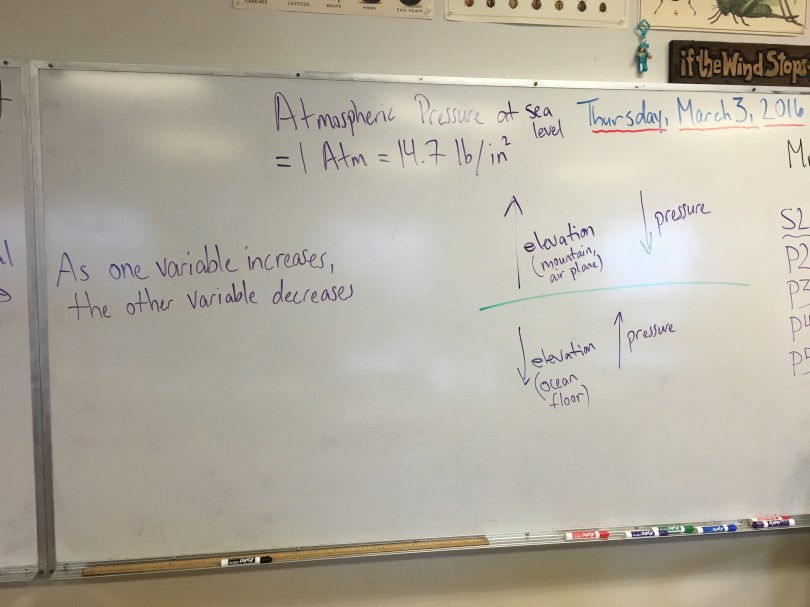 if the Wind Stops
Atmospheric Pressure at sea level
= 1 Atm = 14.7 lb/in²
Thursday, March 3, 2016
As one variable increases,
the other variable decreases
↑ elevation
(mountain,
air plane)
↓ pressure
↓ elevation
(ocean
floor)
↑ pressure
S2
P2